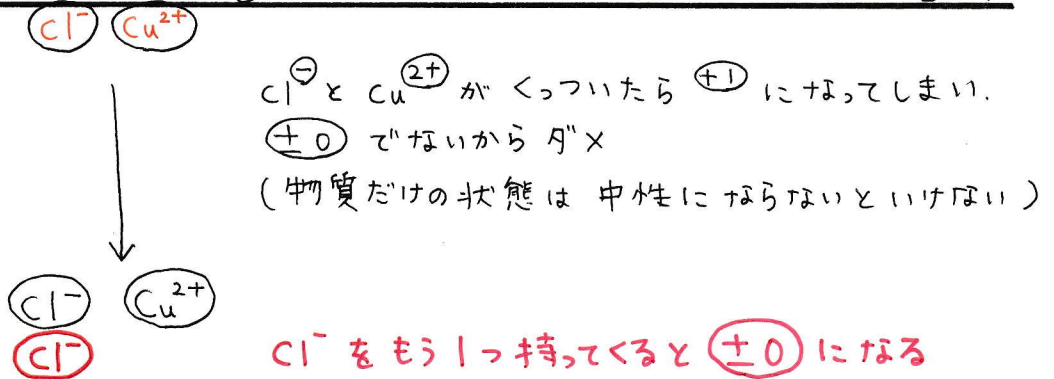 Cl⁻ Cu²⁺
Cl⁻とCu²⁺がくっついたら+1になってしまい.
±0でないからダメ
(物質だけの状態は中性にならないといけない)
Cl⁻ Cu²⁺
Cl⁻ Cl⁻をもう1つ持ってくると±0になる